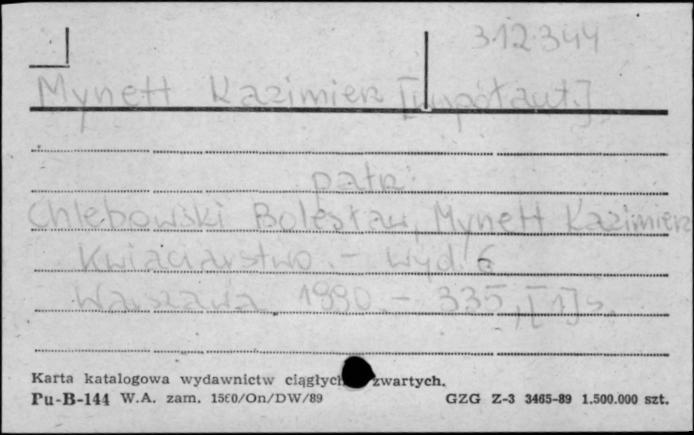 312.344
Mynett Kazimierz [współaut.]
patrz:
Chlebowski Bolesław, Mynett Kazimierz
Kwiaciarstwo. - wyd. 6
Warszawa 1990. - 335, [1] s.
Karta katalogowa wydawnictw ciągłych zwartych.
Pu-B-144 W.A. zam. 1560/On/DW/89 GZG Z-3 3465-89 1.500.000 szt.